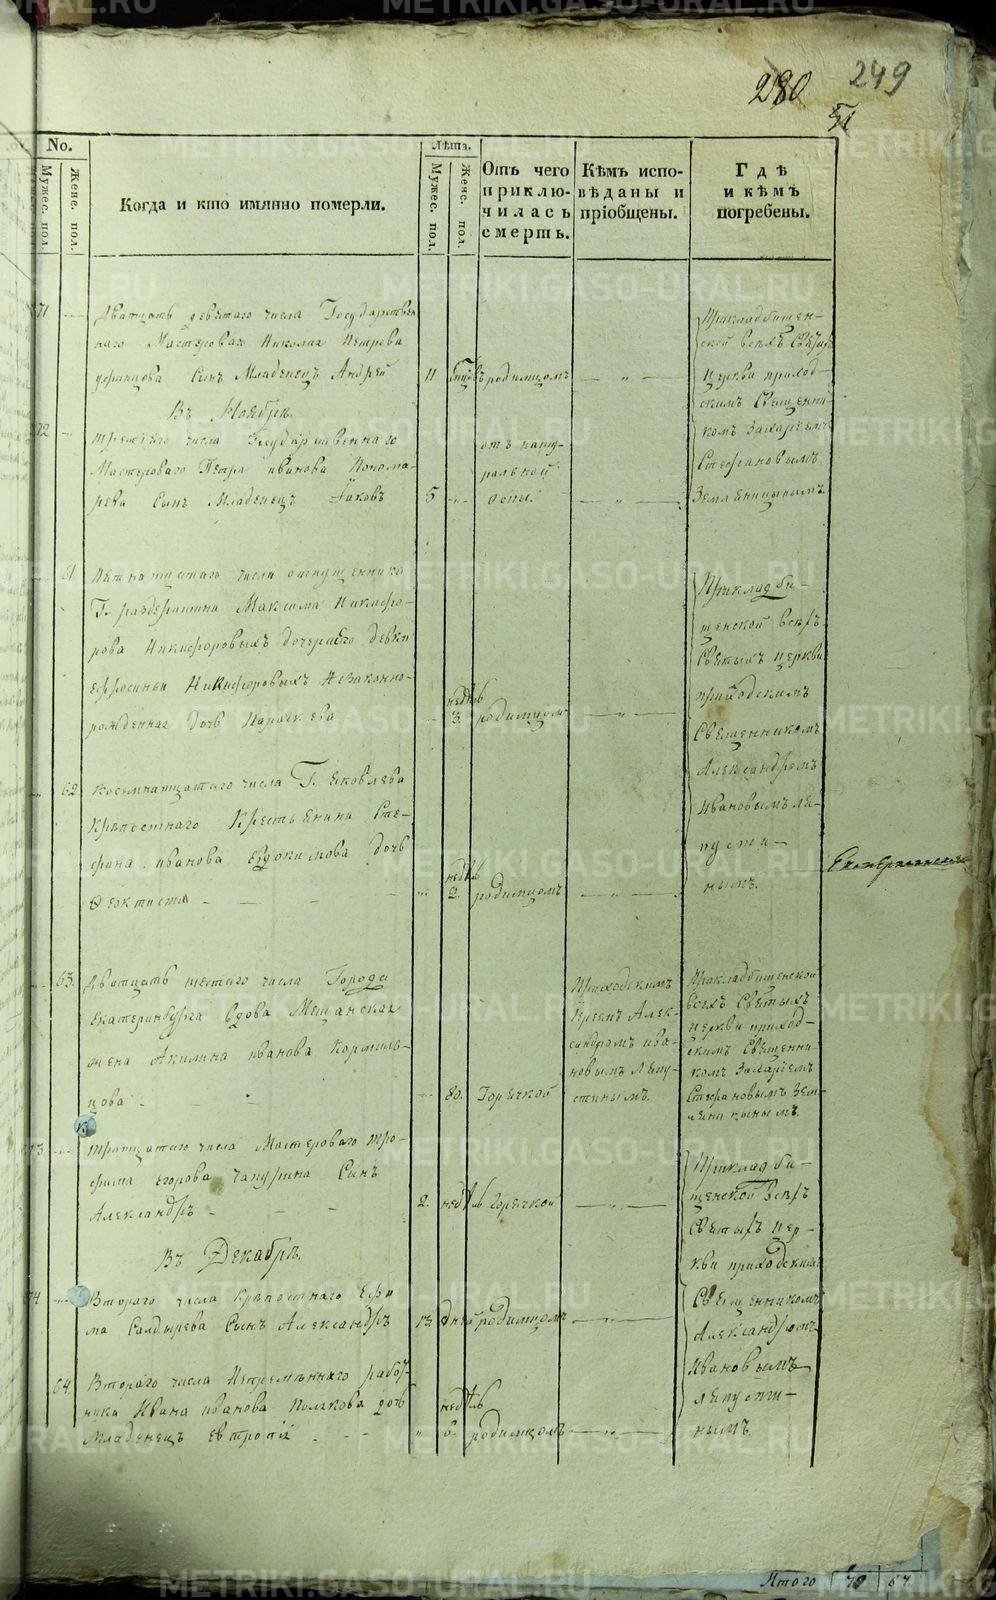 280
249
51
No.
Мужес. пол.
Женс. пол.
Когда и кто имянно померли.
Лѣта.
Мужес. пол.
Женс. пол.
Отъ чего
приклю-
чилась
смерть.
Кѣмъ испо-
вѣданы и
пріобщены.
Гдѣ
и кѣмъ
погребены.
71
Дватцать девятаго числа Государствен
наго Мастероваго Николая Петрова
сынъ Младенецъ Андрей
11
родимцомъ
Прикладбищен-
ской всѣхъ Святыхъ
церкви приход-
скимъ Священни-
комъ Захарїемъ
Стефановымъ
Земляницынымъ.
Въ Ноябрѣ.
72
третьяго числа Государственнаго
Мастероваго Петра иванова Понома-
рева Сынъ Младенецъ Іаковъ
5
отъ нату-
ральной
оспы
61
Пятнатцатаго числа отпущенника
Г. раздеришина Максима Никифо-
рова Никифоровыхъ дочери его девки
ефросиньи Никифоровыхъ Незаконно-
рожденная дочь Параскева
недѣль
3.
родимцомъ
Прикладби-
щенской всѣхъ
Святыхъ церкви
приходскимъ
Священникомъ
Александромъ
Ивановымъ Ля-
пусти-
нымъ.
62
восемнатцатаго числа Г. Яковлева
крѣпостнаго Крестьянина Сте-
фана иванова евдокимова дочь
Феоктиста
недѣль
2.
родимцомъ
63.
Дватцать шестаго числа Города
Екатеринбурга вдова Мѣщанская
жена Акилина иванова Кормиль-
цова
80.
Горячкой
Приходскимъ
Іереемъ Алек-
сандромъ ива-
новымъ Ляпу-
стинымъ.
Прикладбищенской
всехъ Святыхъ
церкви приход-
скимъ Священни-
комъ Захарїемъ
Стефановымъ Зем-
ляницынымъ
73
тритцатаго числа Мастероваго Тро-
фима егорова Чапурина Сынъ
Александръ
2.
недѣль
горячкой
Прикладби-
щенской Всѣхъ
Святыхъ цер-
кви приходскимъ
Священникомъ
Александромъ
Ивановымъ
Ляпусти-
нымъ
Въ Декабрѣ.
74
Втораго числа Крѣпостнаго Ефи
ма Салдырева Сынъ Александръ
13.
дней
родимцомъ
64.
Втораго числа Непремѣннаго работ-
ника Ивана иванова Полякова дочь
Младенецъ евтропїи
недѣль
6.
родимцомъ
Итого
METRIKI.GASO-URAL.RU